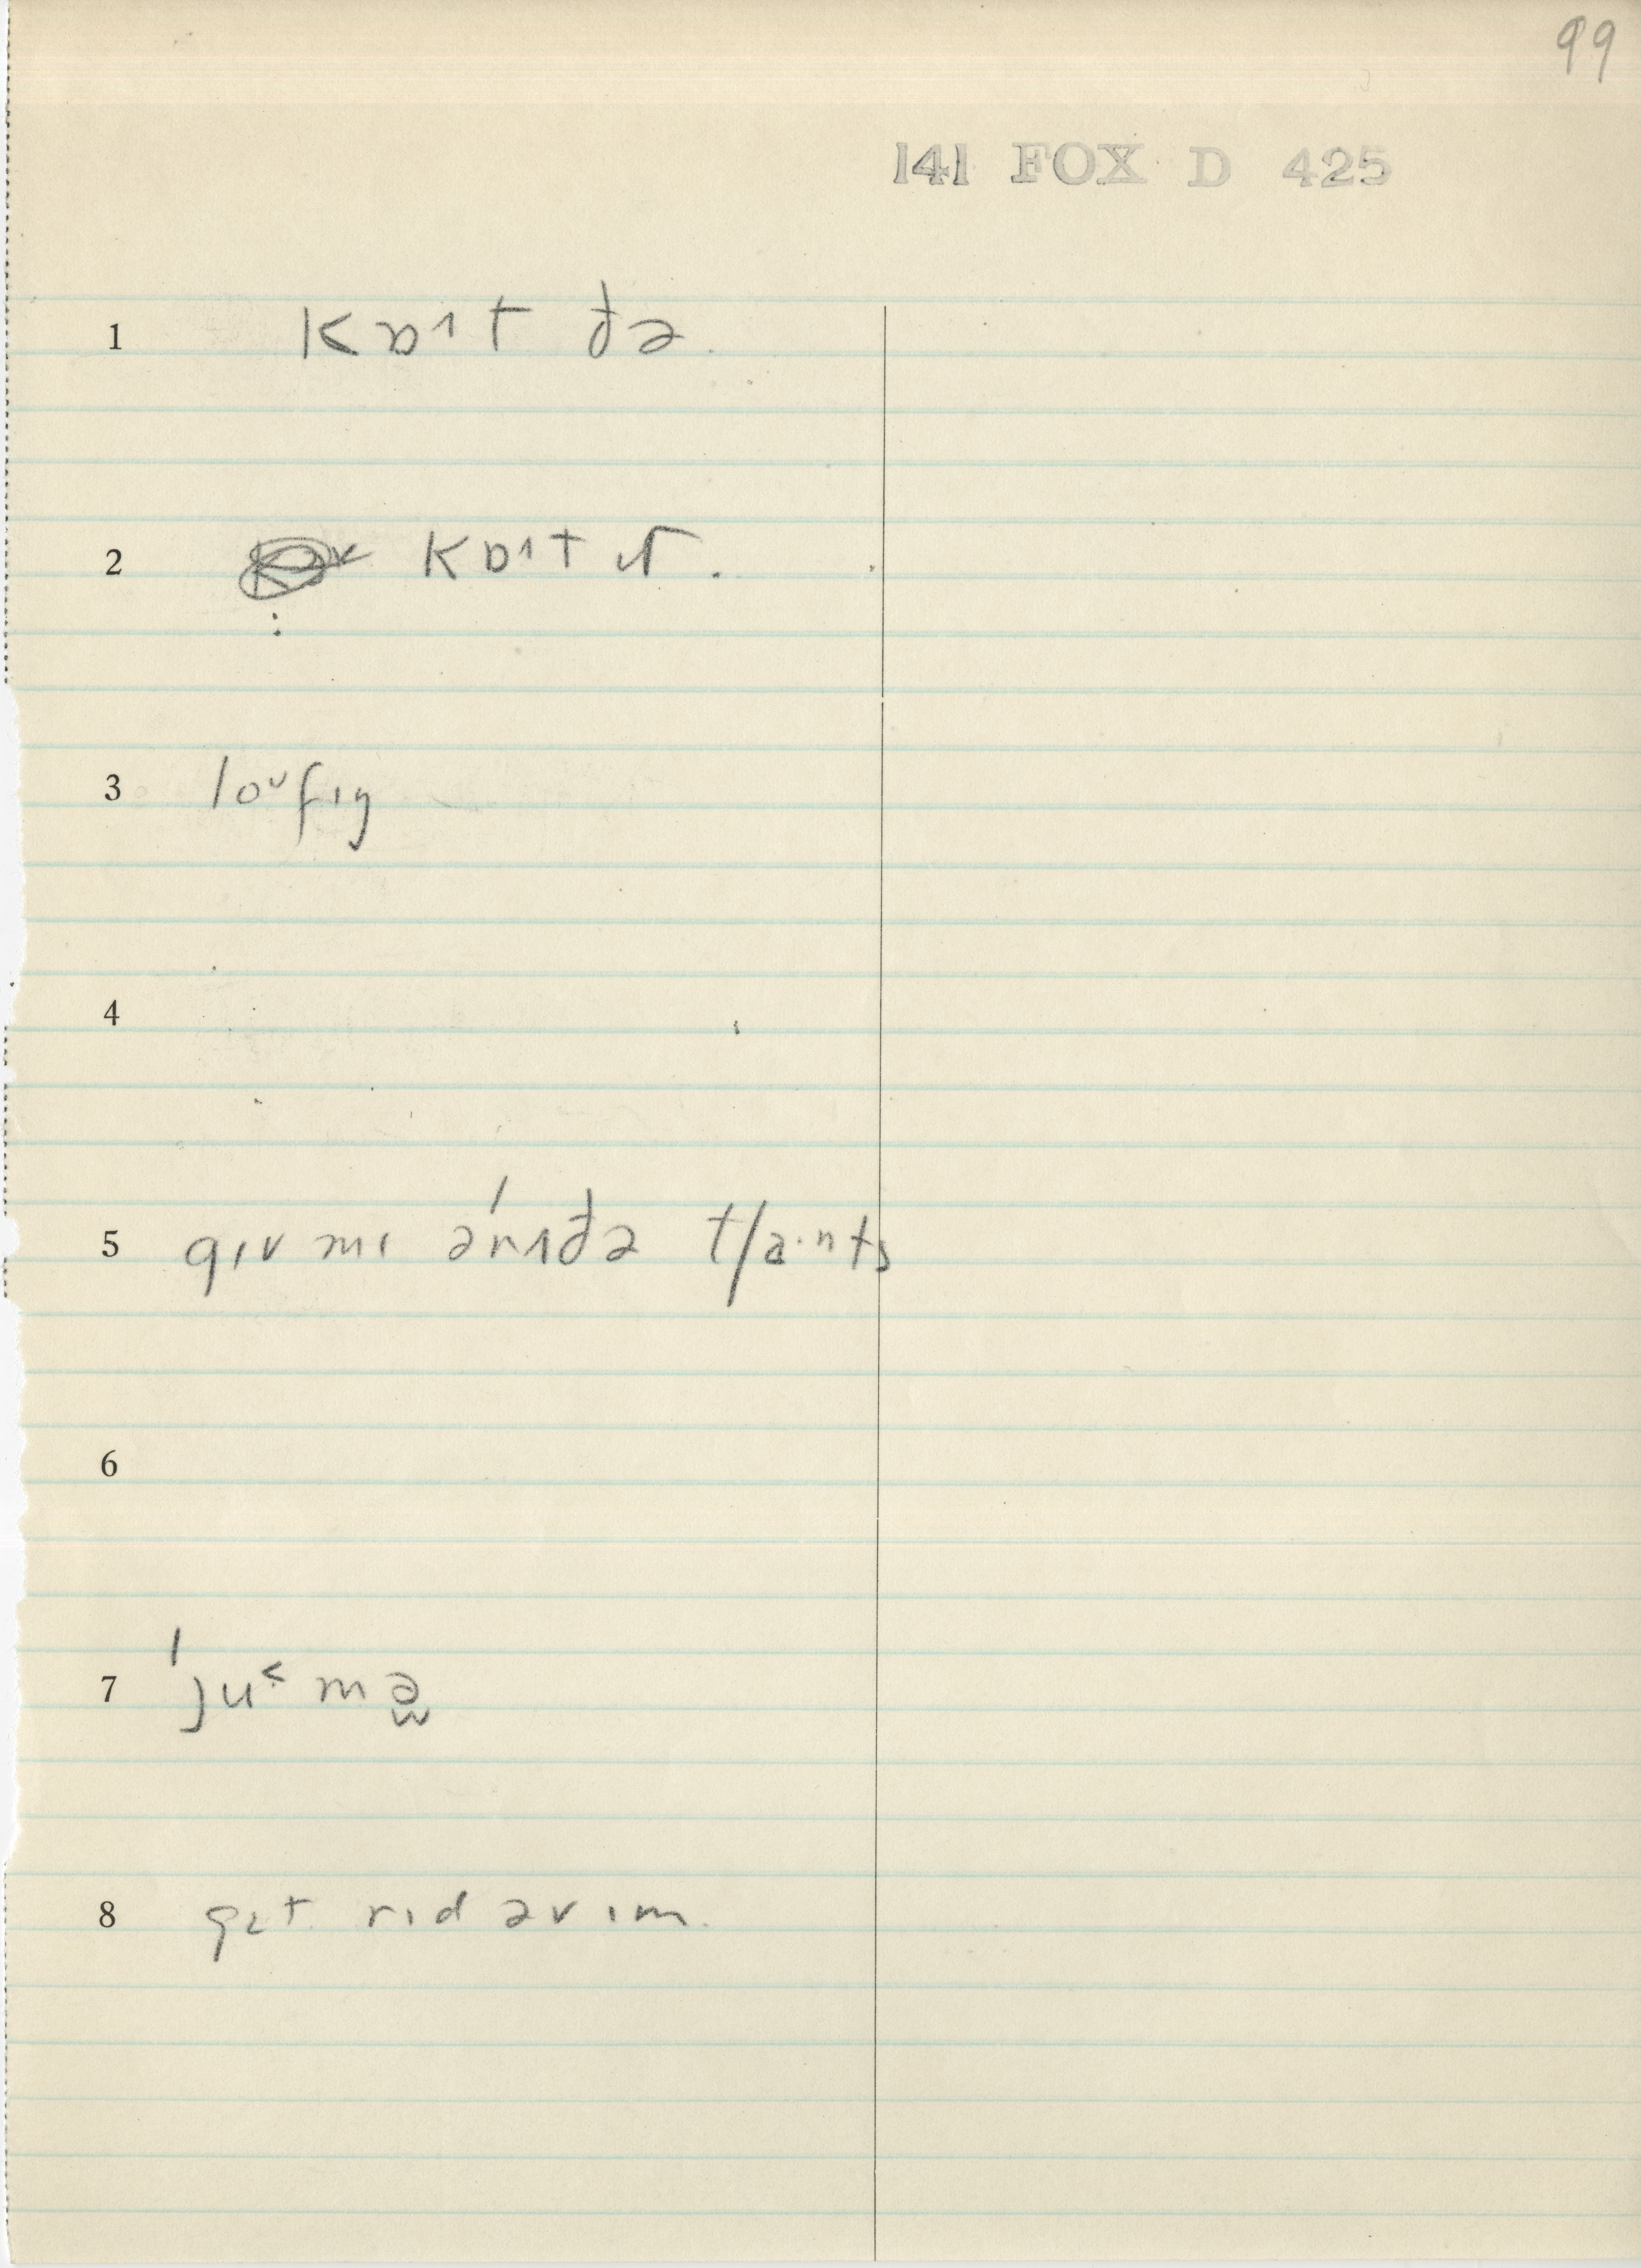 99
141 FOX D 425
1 kɒɪt ðə.
2 kɒɪt ɪt.
3 loᶷfɪŋ
4
5 gɪv mɪ ənɪ́ðə tʃɑ·nts
6
7 ˈju˂ mə̰
8 gɛt rɪd əv ɪm.